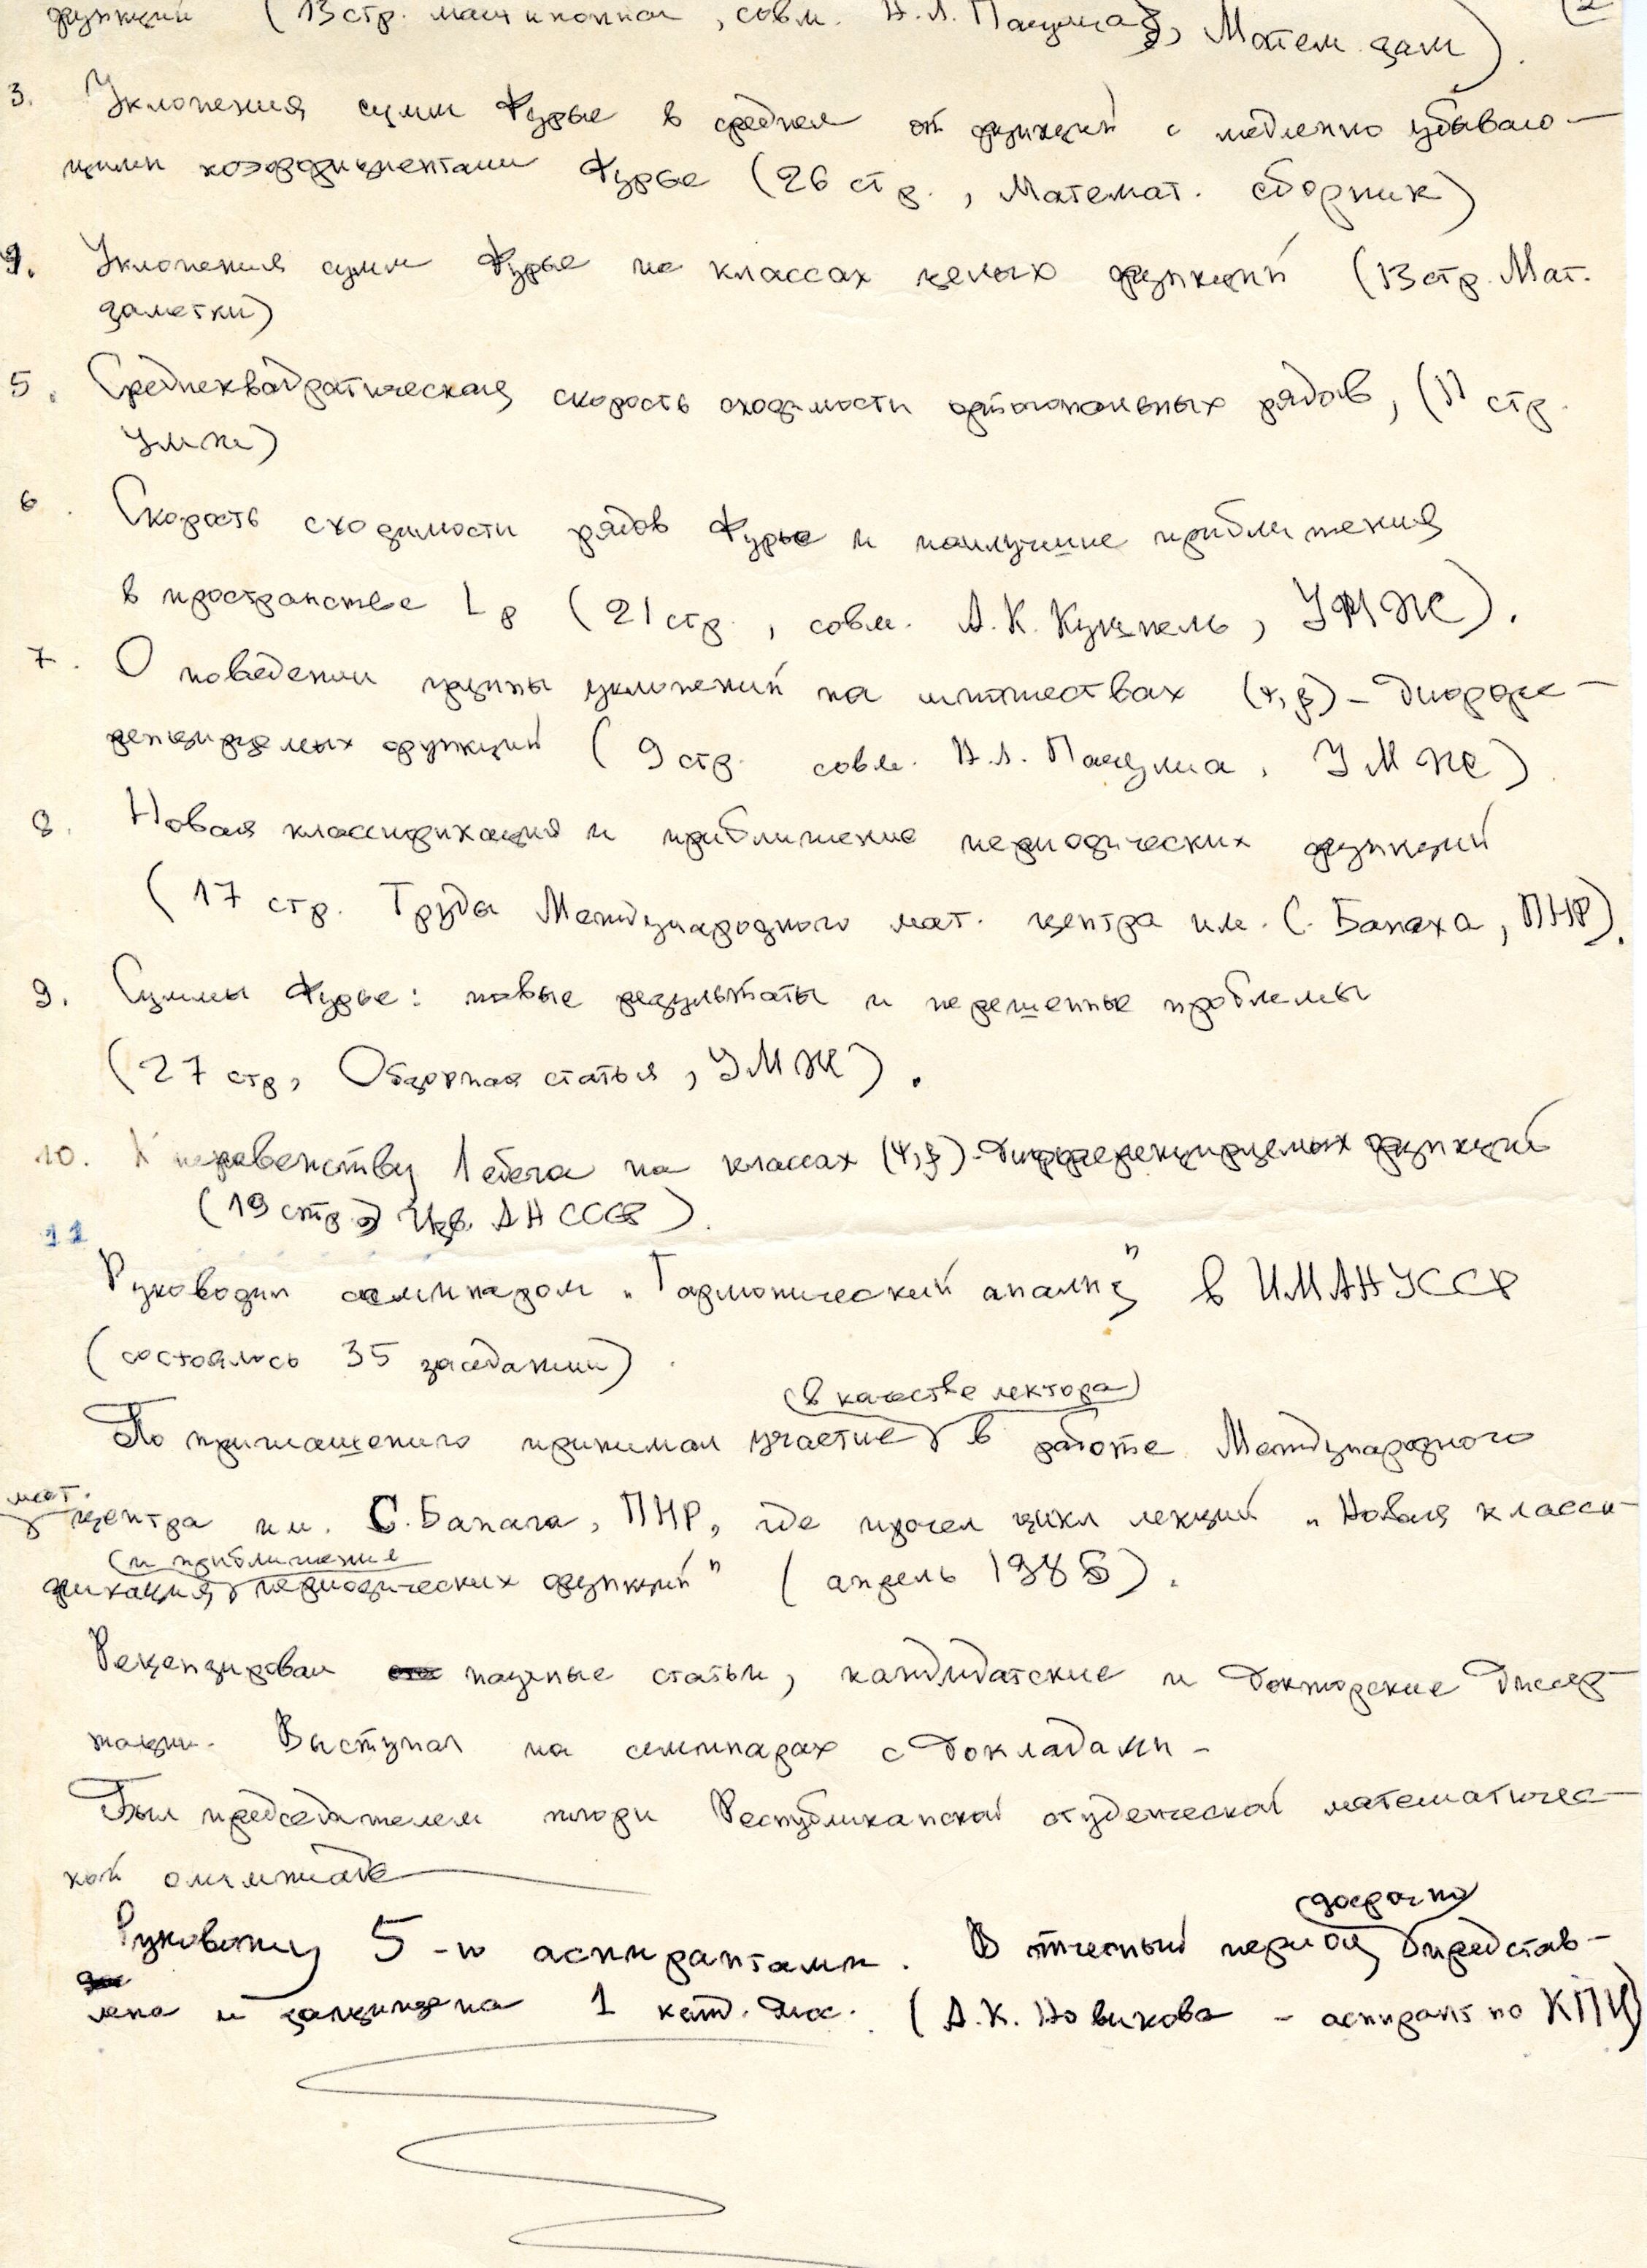 функций (13 стр. машинописи, совм. Н.Л. Пачулиа, Матем. зам).
3. Уклонения сумм Фурье в среднем от функций с медленно убываю-
щими коэффициентами Фурье (26 стр., Математ. сборник)
4. Уклонения сумм Фурье на классах целых функций (13 стр. Мат.
заметки)
5. Среднеквадратическая скорость сходимости ортогональных рядов, (11 стр.
УМЖ)
6. Скорость сходимости рядов Фурье и наилучшие приближения
в пространстве Lp (21 стр., совм. А.К. Кушпель, УМЖ).
7. О поведении группы уклонений на множествах (ψ,β)-диффе-
ренцируемых функций (9 стр. совм. Н.Л. Пачулиа, УМЖ)
8. Новая классификация и приближение периодических функций
(17 стр. Труды Международного мат. центра им. С. Банаха, ПНР).
9. Суммы Фурье: новые результаты и нерешенные проблемы
(27 стр, Обзорная статья, УМЖ).
10. К неравенству Лебега на классах (ψ,β)-дифференцируемых функций
(19 стр. Изв. АН СССР).
11
Руководил семинаром "Гармонический анализ" в ИМ АН УССР
(состоялось 35 заседаний).
(в качестве лектора)
По приглашению принимал участие в работе Международного
мат.
центра им. С. Банаха, ПНР, где прочел цикл лекций "Новая класси-
(и приближение
фикация периодических функций" (апрель 1986).
Рецензировал научные статьи, кандидатские и докторские диссер-
тации. Выступал на семинарах с докладами.
Был председателем жюри Республиканской студенческой математичес-
кой олимпиаде
(досрочно)
Руковожу 5-ю аспирантами. В отчетный период представ-
лена и защищена 1 канд. дисс. (А.К. Новикова - аспирант по КПИ)